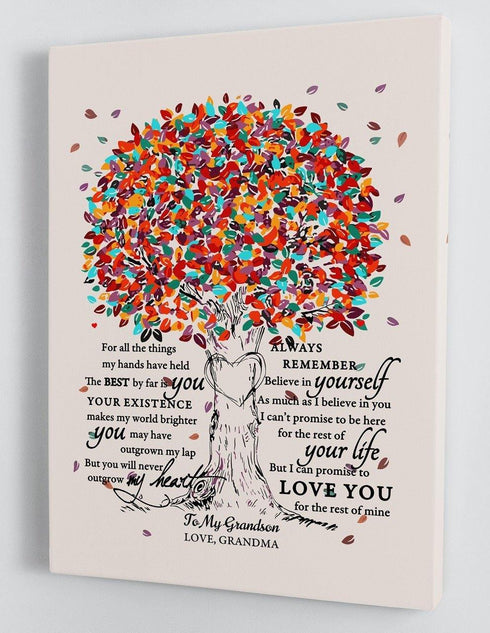 For all the things
my hands have held
The BEST by far is you
YOUR EXISTENCE
makes my world brighter
you may have
outgrown my lap
But you will never
outgrow my heart
ALWAYS
REMEMBER
Believe in yourself
As much as I believe in you
I can't promise to be here
for the rest of
your life
But I can promise to
LOVE YOU
for the rest of mine
To My Grandson
LOVE, GRANDMA